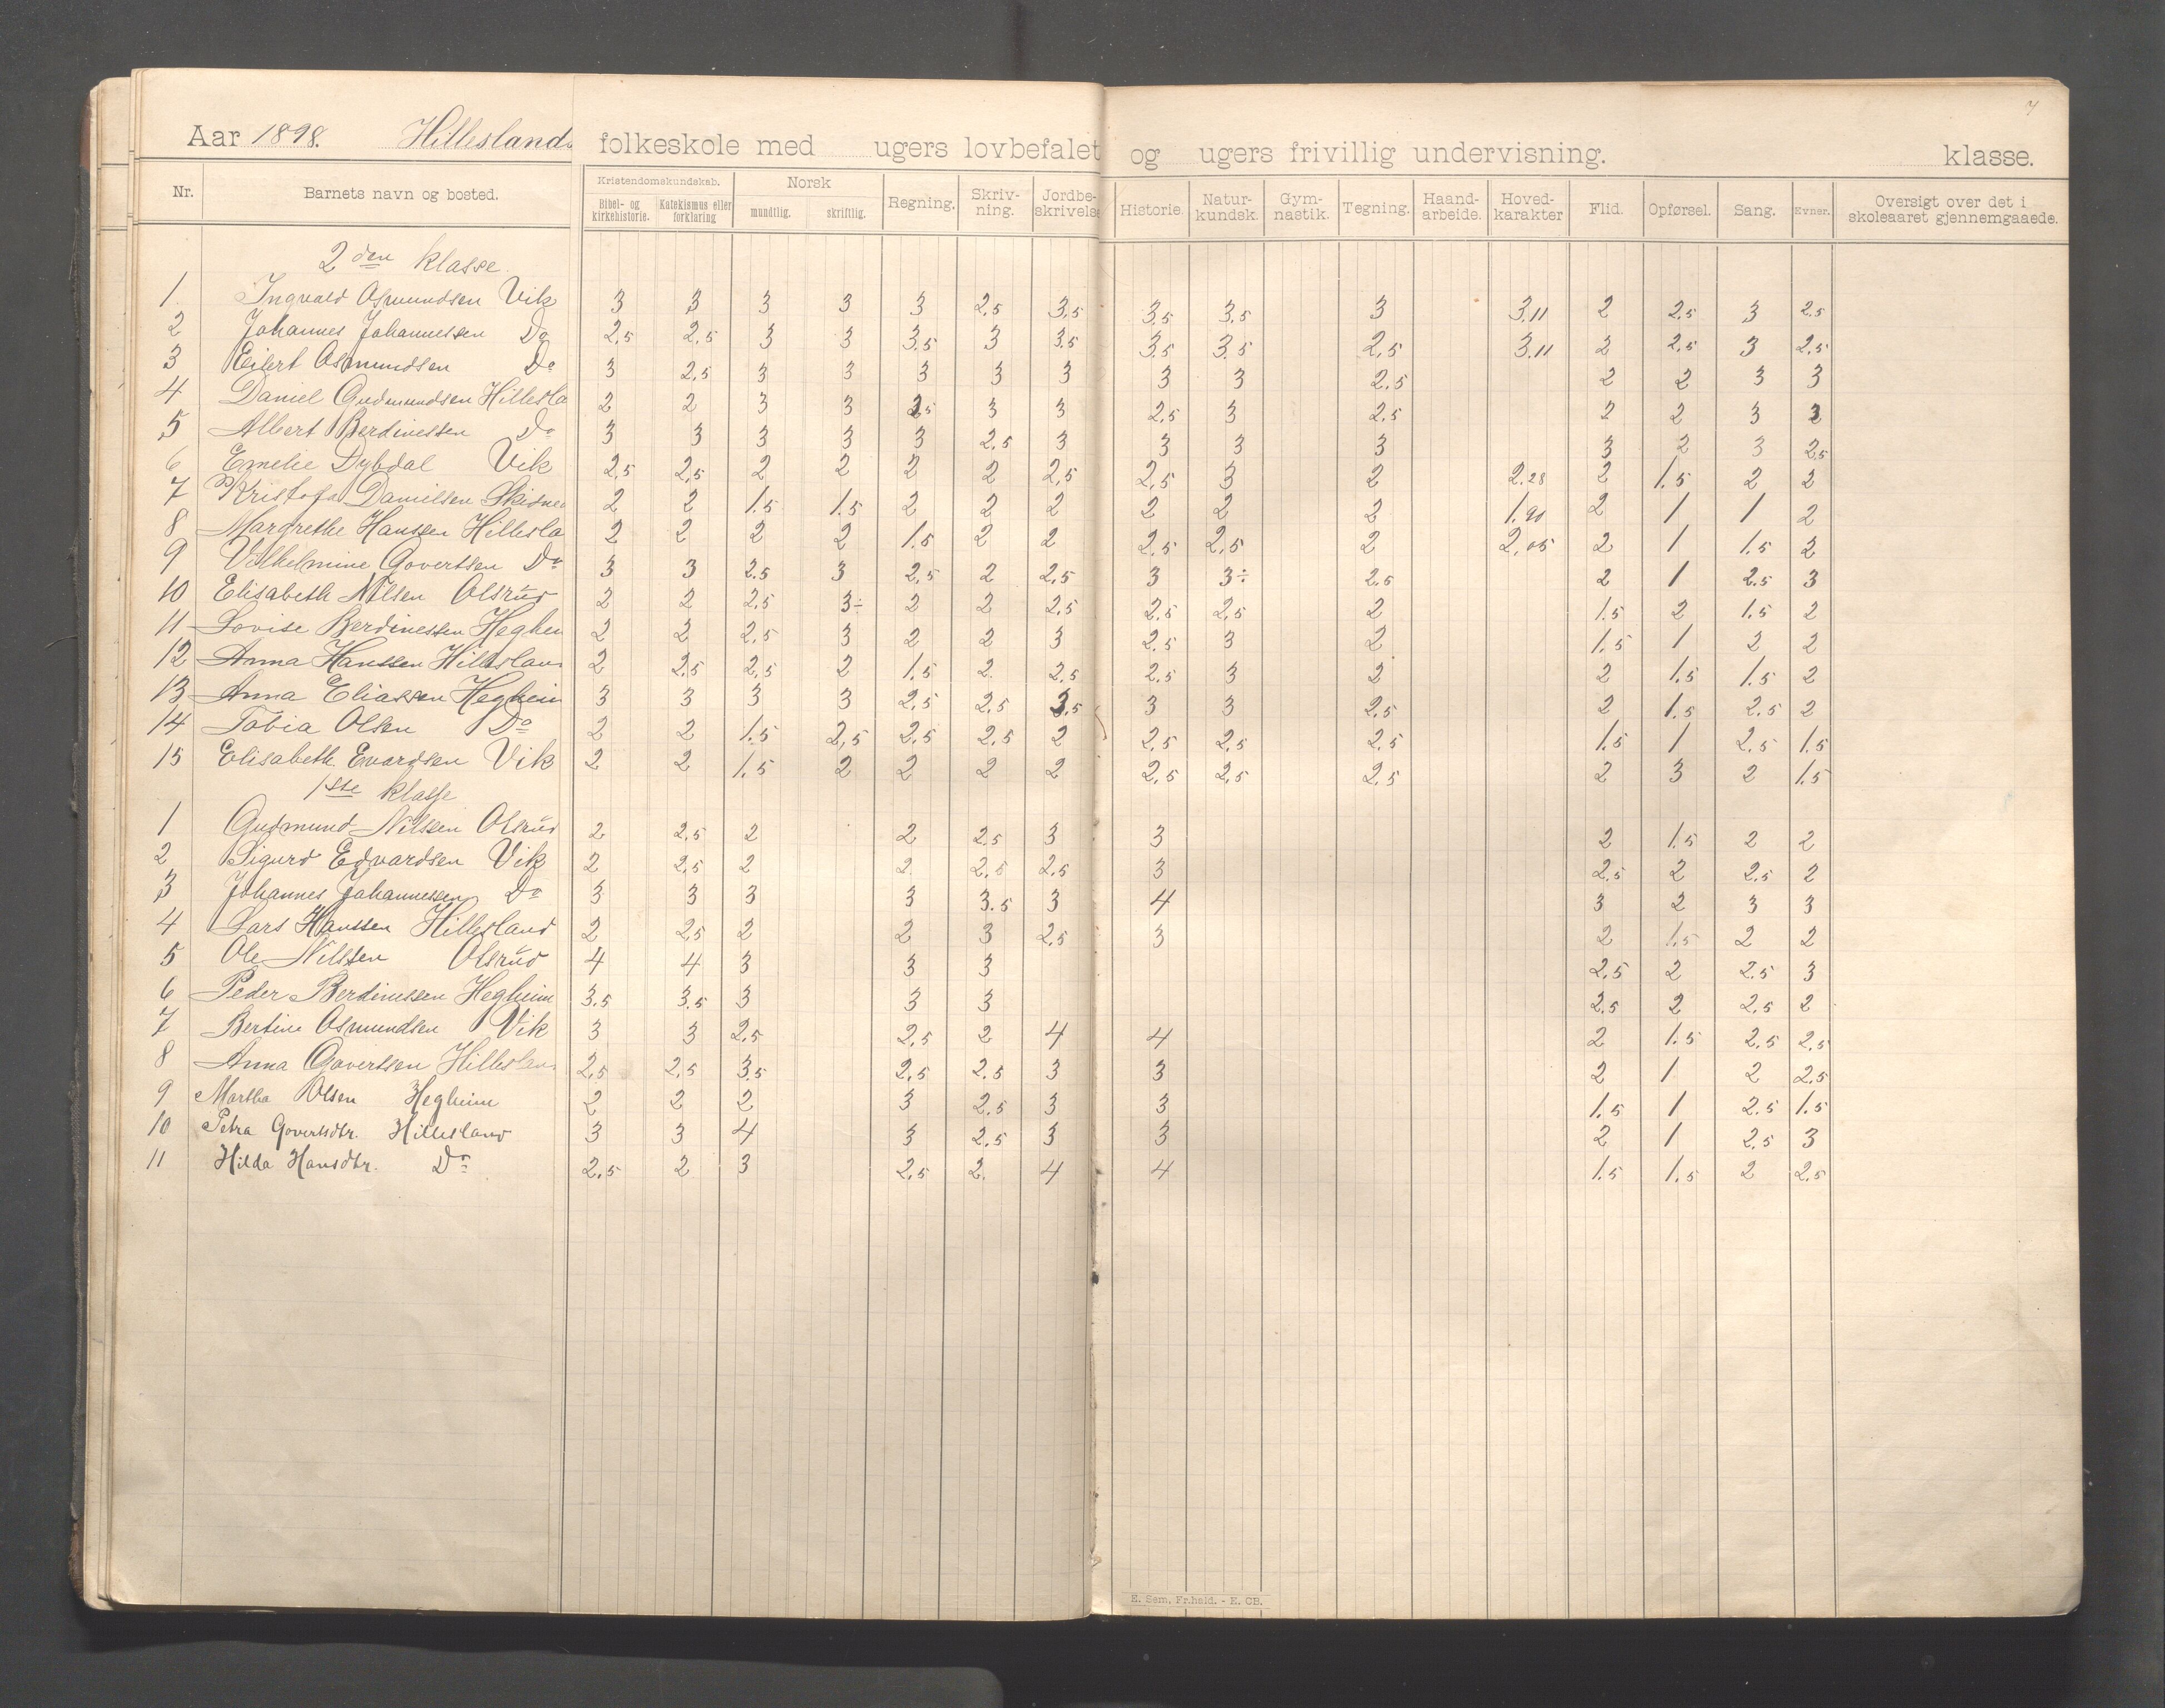 7
Aar 1898. Hilleslands folkeskole med ugers lovbefalet og ugers frivillig undervisning. klasse.
Nr. Barnets navn og bosted. Kristendomskundskab. Bibel- og kirkehistorie. Katekismus eller forklaring Norsk mundtlig. skriftlig. Regning. Skriv-ning. Jordbe-skrivelse Historie. Natur-kundsk. Gym-nastik. Tegning. Haand-arbeide. Hoved-karakter Flid. Opførsel. Sang. Evner. Oversigt over det i skoleaaret gjennemgaaede.
2den klasse
1 Ingvald Osmundsen Vik 3 3 3 3 3 2,5 3,5 3,5 3,5 3 3.11 2 2,5 3 2,5
2 Johannes Johannessen Do 2,5 2,5 3 3 3,5 3 3,5 3,5 3,5 2,5 3.11 2 2,5 3 2,5
3 Eilert Osmundsen Do 3 2,5 3 3 3 3 3 3 3 2,5 2 2 3 3
4 Daniel Gudmundsen Hillesla 2 2 3 3 2,5 3 3 2,5 3 2,5 2 2 3 2
5 Albert Berdinessen Do 3 3 3 3 3 2,5 3 3 3 3 3 2 3 2,5
6 Emelie Dybdal Vik 2,5 2,5 2 2 2 2 2,5 2,5 3 2 2.28 2 1.5 2 2
7 Kristofa Danielsen 2 2 1.5 1.5 2 2 2 2 2 2 1.90 2 1 1 2
8 Margrethe Hanssen Hillesla 2 2 2 2 1.5 2 2 2,5 2,5 2 2,05 2 1 1.5 2
9 Vilhelmine Govertsen Do 3 3 2.5 3 2,5 2 2,5 3 3÷ 2,5 2 1 2.5 3
10 Elisabeth Nilsen Olsrud 2 2 2,5 3÷ 2 2 2,5 2,5 2,5 2 1.5 2 1.5 2
11 Lovise Berdinessen Heghei 2 2 2,5 3 2 2 3 2,5 3 2 1.5 1 2 2
12 Anna Hanssen Hilleslan 2 2,5 2,5 2 1.5 2 2,5 2,5 3 2 2 1.5 1.5 2
13 Anna Eliassen Hegheim 3 3 3 3 2,5 2,5 3,5 3 3 2,5 2 1.5 2.5 2
14 Tobia Olsen Do 2 2 1.5 2,5 2,5 2,5 2 2,5 2,5 2,5 1.5 1 2,5 1.5
15 Elisabeth Evardsen Vik 2 2 1.5 2 2 2 2 2,5 2,5 2,5 2 3 2 1.5
1ste klasse
1 Gudmund Nilssen Olsrud 2 2,5 2 2 2,5 3 3 2 1.5 2 2
2 Sigurd Edvardsen Vik 2 2,5 2 2 2,5 2,5 3 2,5 2 2,5 2
3 Johannes Johannessen Do 3 3 3 3 3.5 3 4 3 2 3 3
4 Lars Hanssen Hillesland 2 2,5 2 2 3 2,5 3 2 1.5 2 2
5 Ole Nilssen Olsrud 4 4 3 3 3 2,5 2 2,5 3
6 Peder Berdinessen Hegheim 3.5 3.5 3 3 3 2,5 2 2,5 2
7 Bertine Osmundsen Vik 3 3 2,5 2,5 2 4 4 2 1.5 2,5 2,5
8 Anna Govertssen Hilleslan 2,5 2,5 3.5 2,5 2.5 3 3 2 1 2 2,5
9 Martha Olsen Hegheim 2 2 2 3 2,5 3 3 1.5 1 2,5 1.5
10 Petra Govertsdtr. Hillesland 3 3 4 3 2,5 3 3 2 1 2,5 3
11 Hilda Hansdtr. Do 2,5 2 3 2,5 2 4 4 1.5 1.5 2 2,5
E. Sem, Fr.hald. - E. CB.